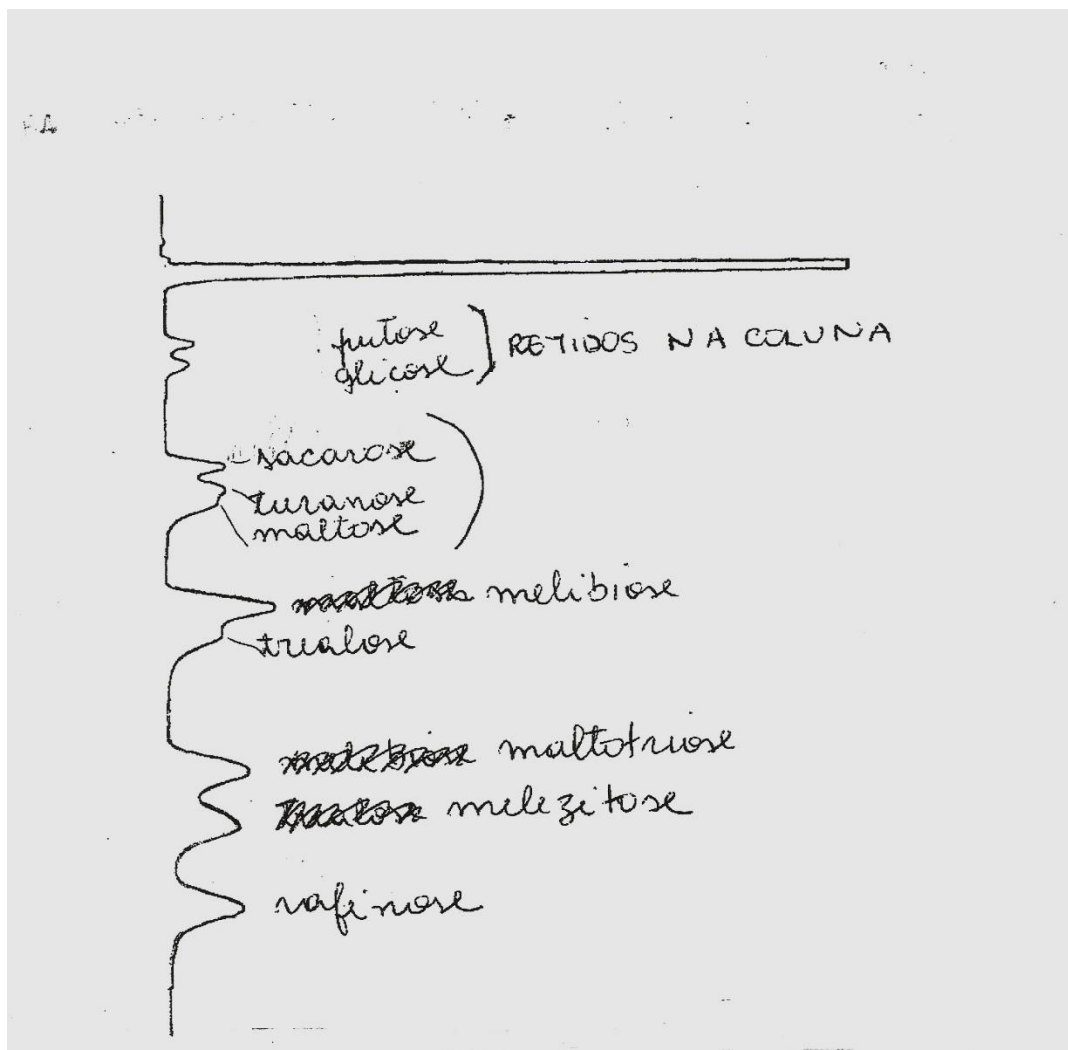 frutose
glicose
RETIDOS NA COLUNA
sacarose
turanose
maltose
melibiose
trealose
maltotriose
melezitose
rafinose